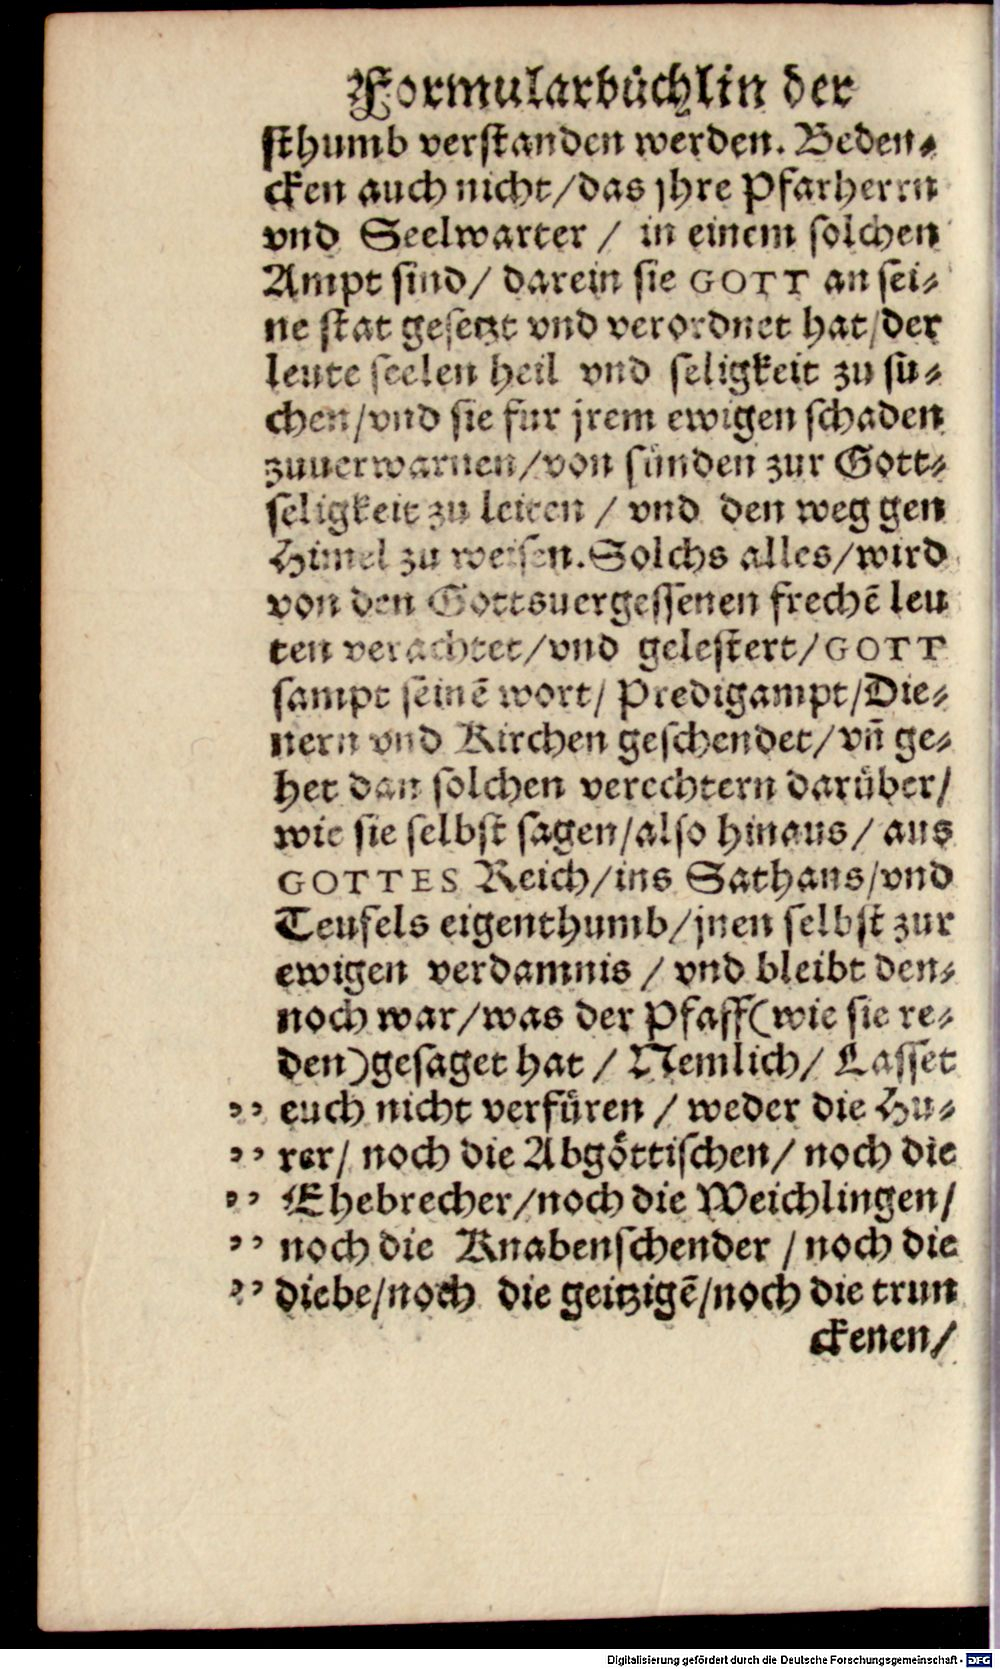 Formularbüchlin der
sthumb verstanden werden. Beden⸗
cken auch nicht/das jhre Pfarherrn
vnd Seelwarter / in einem solchen
Ampt sind/ darein sie GOTT an sei⸗
ne stat gesetzt vnd verordnet hat/der
leute seelen heil vnd seligkeit zu sů⸗
chen/vnd sie fur jrem ewigen schaden
zuuerwarnen/von sünden zur Gott⸗
seligkeit zu leiten / vnd den weg gen
Himel zu weisen. Solchs alles/wird
von den Gottsuergessenen frechẽ leu
ten verachtet/vnd gelestert/GOTT
sampt seinẽ wort/ Predigampt/Die⸗
nern vnd Kirchen geschendet/vñ ge⸗
het dan solchen verechtern darüber/
wie sie selbst sagen/also hinaus/ aus
GOTTES Reich/ins Sathans/vnd
Teufels eigenthumb/jnen selbst zur
ewigen verdamnis / vnd bleibt den⸗
noch war/was der Pfaff(wie sie re⸗
den)gesaget hat / Nemlich/ Lasset
„ euch nicht verfüren / weder die Hu⸗
„ rer/ noch die Abgöttischen/ noch die
„ Ehebrecher/noch die Weichlingen/
„ noch die Knabenschender / noch die
„ diebe/noch die geitzigẽ/noch die trun
ckenen/
Digitalisierung gefördert durch die Deutsche Forschungsgemeinschaft - DFG